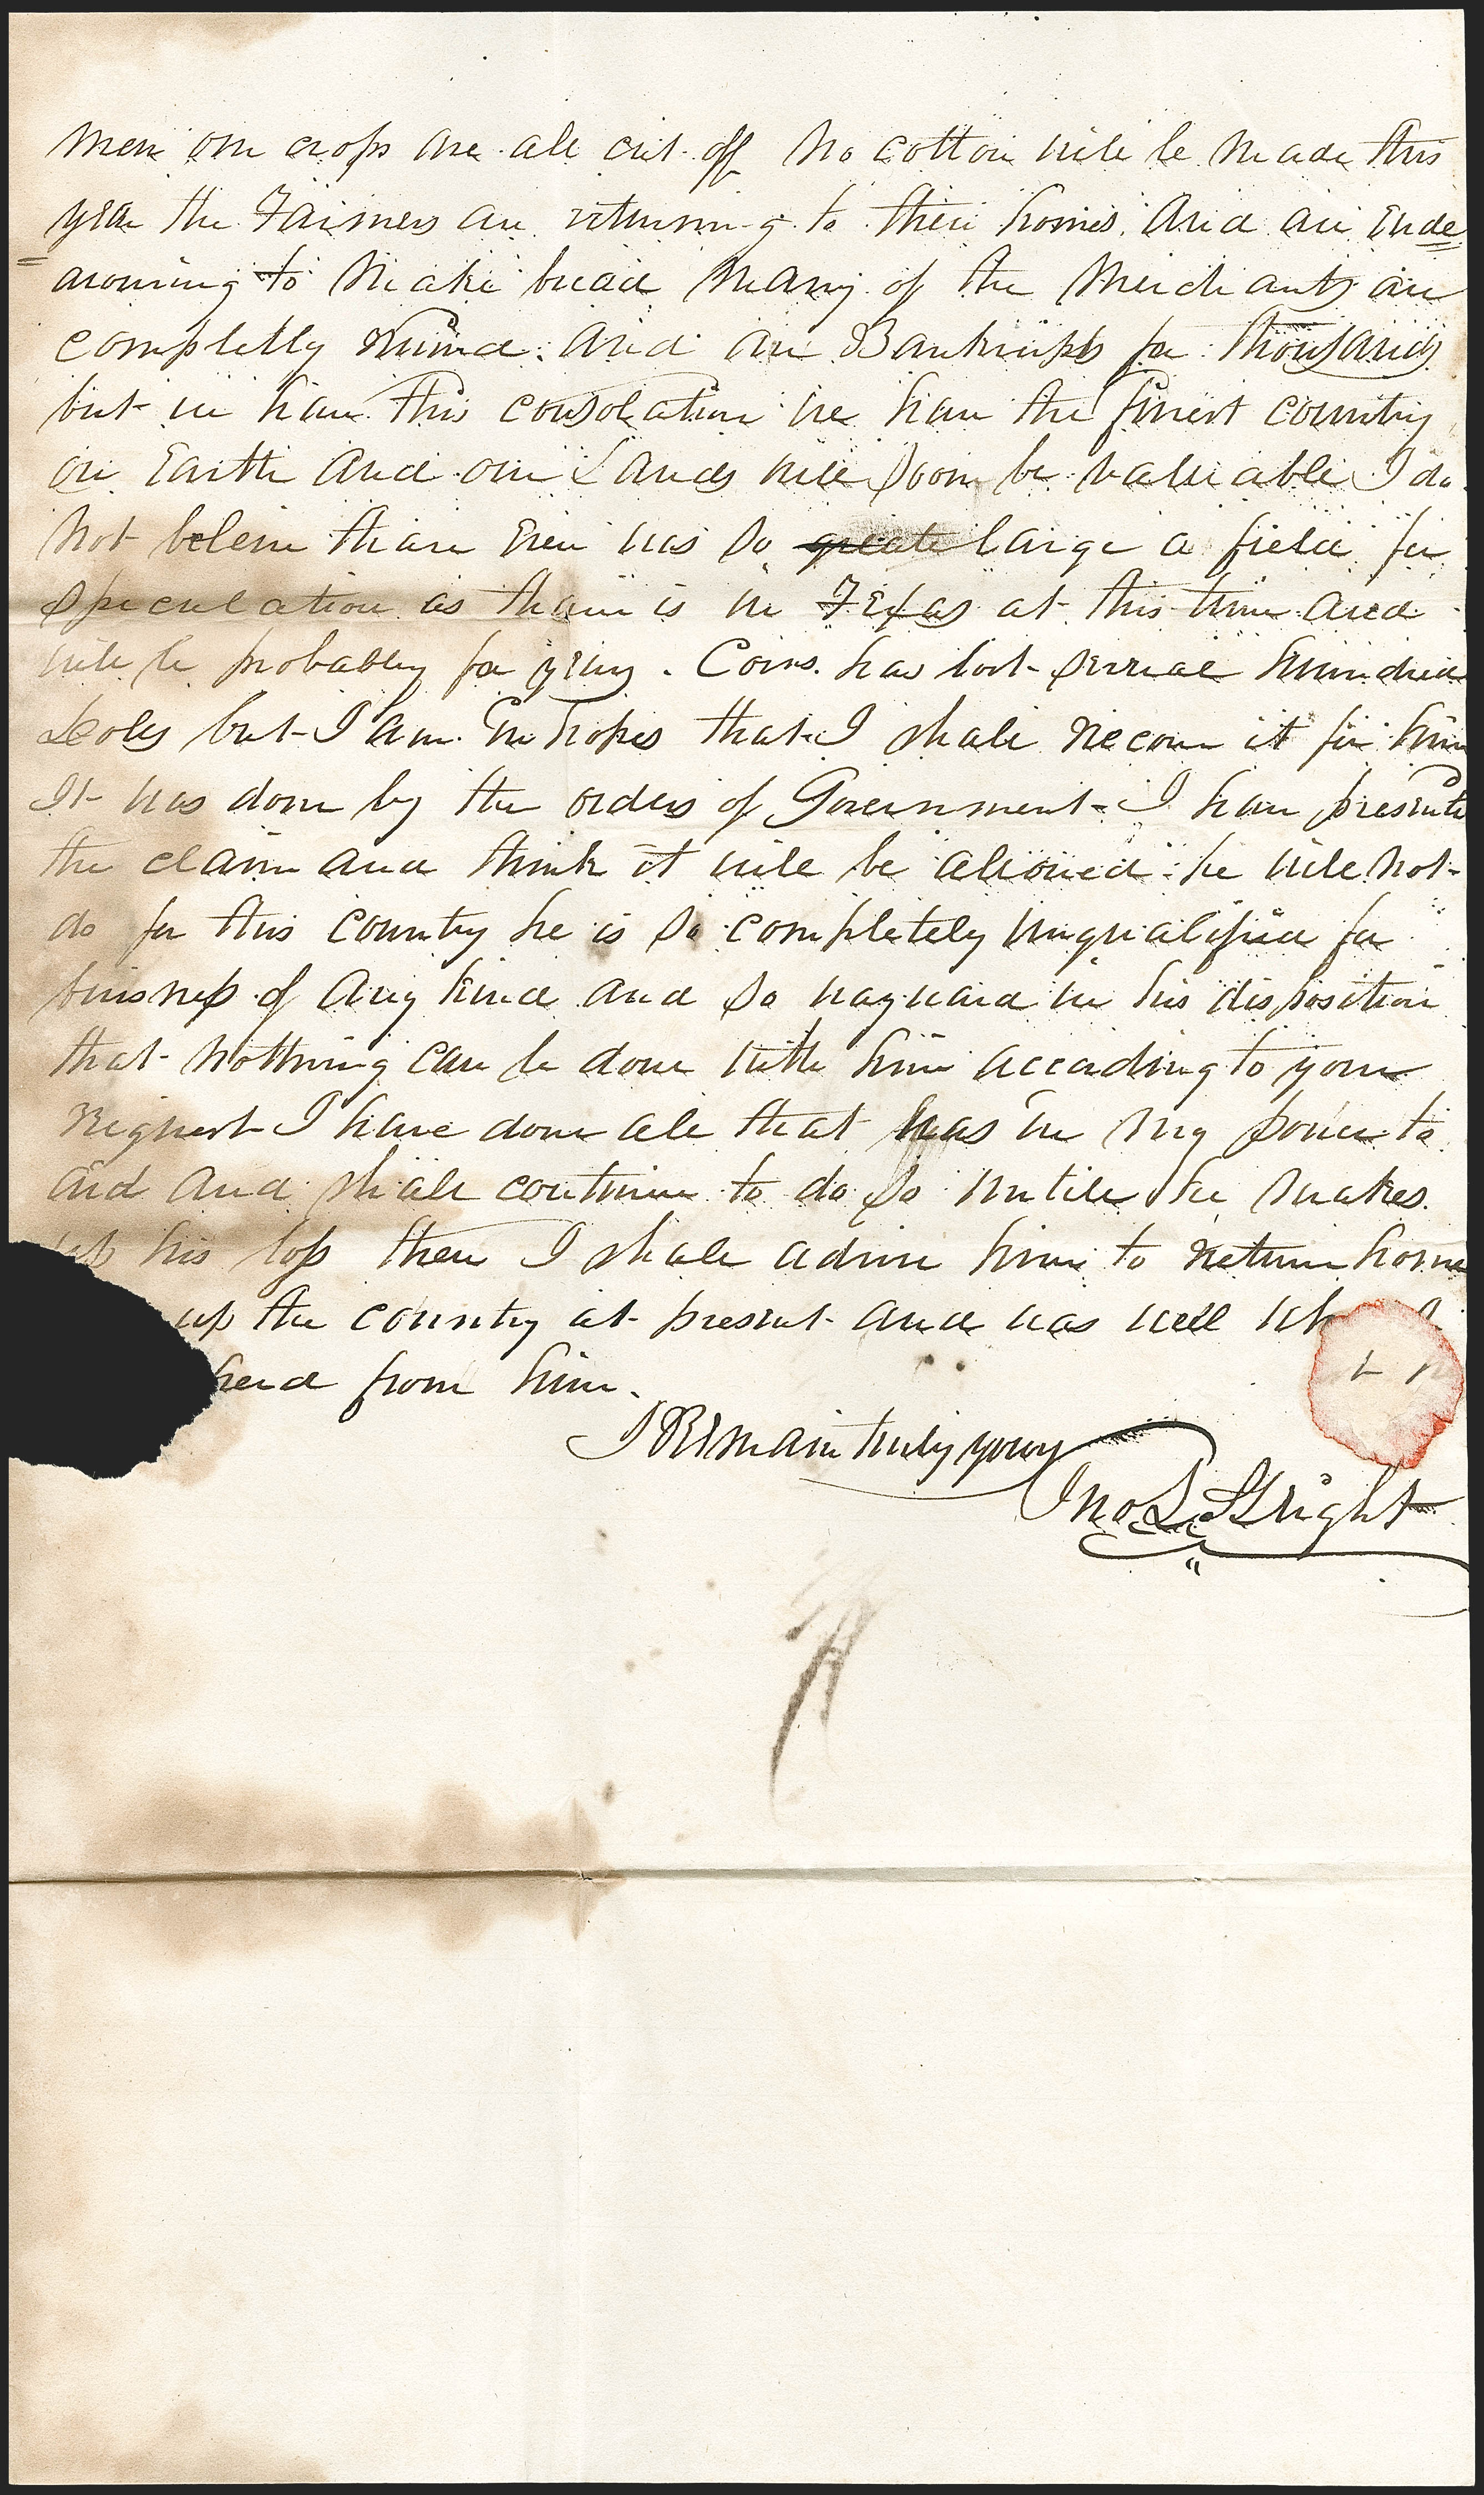 men our crops are all cut off No cotton will be made this
year the Farmers are returning to their homes. And are Ende
=avouring to make bread Many of the Merchants are
completly Ruined. And are Bankrupts for thousands
but we have this consolation we have the finest country
on Earth And our Lands will soon be valuable I do
Not beleive thare Ever was so greate large a field for
speculation as thare is in Texas at this time and
will be probably for years. has lost several hundred
Dolls but I am In hopes that I shall Recover it for him
It was done by the orders of Government - I have presente
the claim and think it will be allowed. he will Not
do for this country he is so completely unqualified for
business of Any kind and so wayward in his disposition
that Nothing can be done with him according to your
Request I have done all that was in my power to
aid And shall continue to do so untill he makes
up his loss then I shall advise him to Return home
up the country at present and was well
heard from him.
I Remain truly yours
Jno